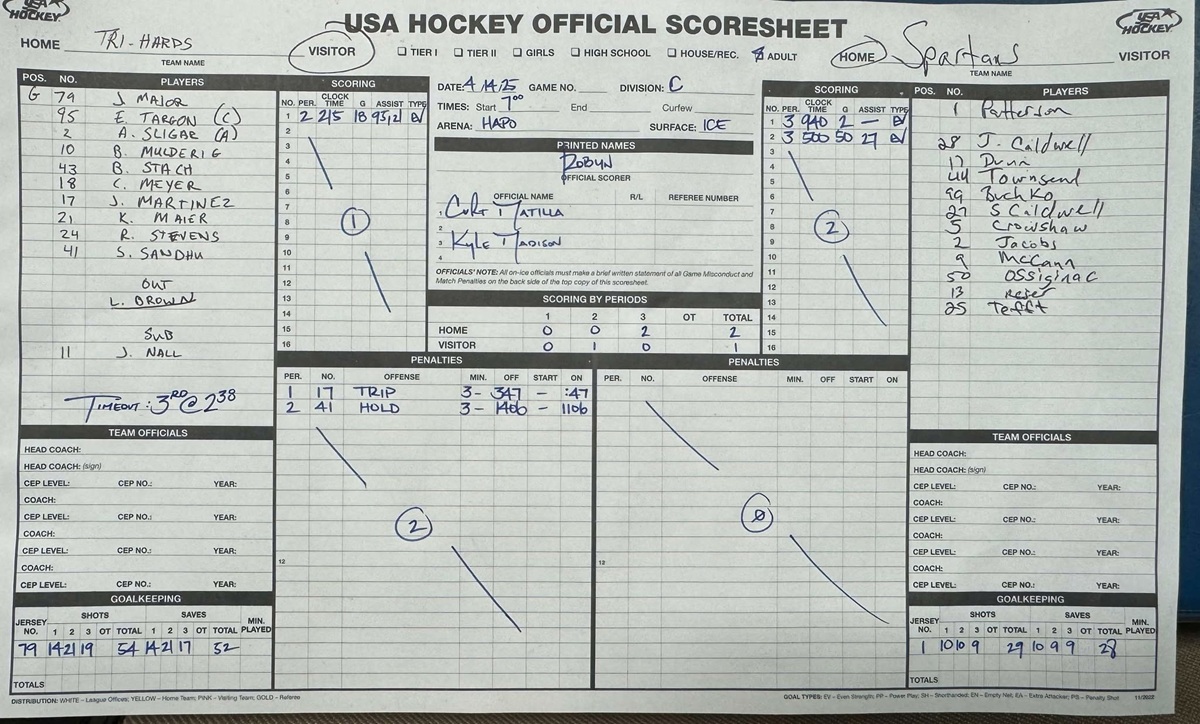 USA HOCKEY
USA HOCKEY OFFICIAL SCORESHEET
USA HOCKEY
HOME TRI-HARDS VISITOR
TEAM NAME
TIER I TIER II GIRLS HIGH SCHOOL HOUSE/REC. ADULT
HOME Spartans VISITOR
TEAM NAME
POS. NO. PLAYERS
G 79 J. MAJOR
95 E. TARGON (C)
2 A. SLIGAR (A)
10 B. MULDERIG
43 B. STACH
18 C. MEYER
17 J. MARTINEZ
21 K. MAIER
24 R. STEVENS
41 S. SANDHU
OUT
L. BROWN
SUB
11 J. NALL
TIMEOUT: 3RD @ 238
SCORING
NO. PER. CLOCK TIME G ASSIST TYPE
1 2 215 18 95,21 EV
2
3
4
5
6
7
8 1
9
10
11
12
13
14
15
16
DATE: 4/14/25 GAME NO. DIVISION: C
TIMES: Start 7:00 End Curfew
ARENA: HAPO SURFACE: ICE
PRINTED NAMES
ROBYN
OFFICIAL SCORER
OFFICIAL NAME R/L REFEREE NUMBER
1 CURT MATILLA
2
3 KYLE MADISON
4
OFFICIALS' NOTE: All on-ice officials must make a brief written statement of all Game Misconduct and
Match Penalties on the back side of the top copy of this scoresheet.
SCORING BY PERIODS
1 2 3 OT TOTAL
HOME 0 0 2 2
VISITOR 0 1 0 1
SCORING
NO. PER. CLOCK TIME G ASSIST TYPE
1 3 940 2 — EV
2 3 500 50 27 EV
3
4
5
6
7
8 2
9
10
11
12
13
14
15
16
POS. NO. PLAYERS
1 Patterson
28 J. Caldwell
17 Dunn
44 Townsend
99 Buchko
27 S Caldwell
5 Crowshaw
2 Jacobs
9 McCann
50 Ossiginac
13 Reser
25 Tefft
PENALTIES
PER. NO. OFFENSE MIN. OFF START ON
1 17 TRIP 3- 347 - :47
2 41 HOLD 3- 1406 - 1106
2
12
PENALTIES
PER. NO. OFFENSE MIN. OFF START ON
0
12
TEAM OFFICIALS
HEAD COACH:
HEAD COACH: (sign)
CEP LEVEL: CEP NO.: YEAR:
COACH:
CEP LEVEL: CEP NO.: YEAR:
COACH:
CEP LEVEL: CEP NO.: YEAR:
COACH:
CEP LEVEL: CEP NO.: YEAR:
GOALKEEPING
JERSEY NO. SHOTS SAVES MIN. PLAYED
1 2 3 OT TOTAL 1 2 3 OT TOTAL
79 14 21 19 54 14 21 17 52
TOTALS
TEAM OFFICIALS
HEAD COACH:
HEAD COACH: (sign)
CEP LEVEL: CEP NO.: YEAR:
COACH:
CEP LEVEL: CEP NO.: YEAR:
COACH:
CEP LEVEL: CEP NO.: YEAR:
COACH:
CEP LEVEL: CEP NO.: YEAR:
GOALKEEPING
JERSEY NO. SHOTS SAVES MIN. PLAYED
1 2 3 OT TOTAL 1 2 3 OT TOTAL
1 10 10 9 29 10 9 9 28
TOTALS
DISTRIBUTION: WHITE – League Offices; YELLOW – Home Team; PINK – Visiting Team; GOLD – Referee
GOAL TYPES: EV – Even Strength; PP – Power Play; SH – Shorthanded; EN – Empty Net; EA – Extra Attacker; PS – Penalty Shot 11/2022